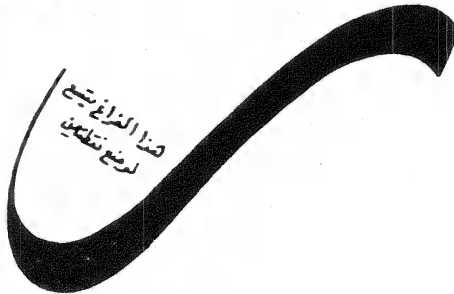 هذا الفراغ يتسع
لوضع نقطتين